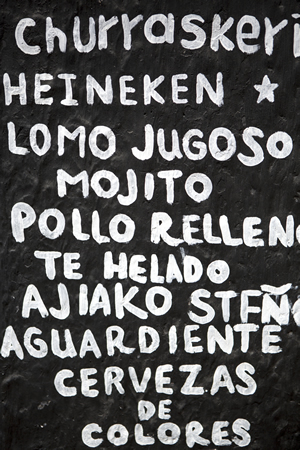 Churraskeri
HEINEKEN
LOMO JUGOSO
MOJITO
POLLO RELLENO
TE HELADO
AJIAKO STEÑO
AGUARDIENTE
CERVEZAS
DE
COLORES